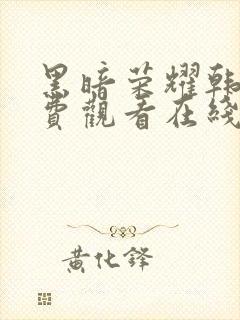 黑暗荣耀韩
费觀看在线
黄化锋